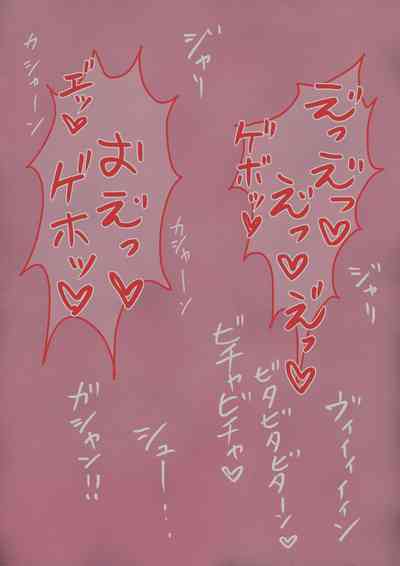 え゛っえ゛っ♡
え゛っ♡え゛っ♡
ゲボッ♡
ジャリ
ジャリ
ヴィイィイィン
ビタビタビターン♡
ビチャビチャ♡
お゛え゛っ♡
ゲホッ♡
エ゛ッ♡
カシャーン
カシャーン
シュー...
ガシャン!!